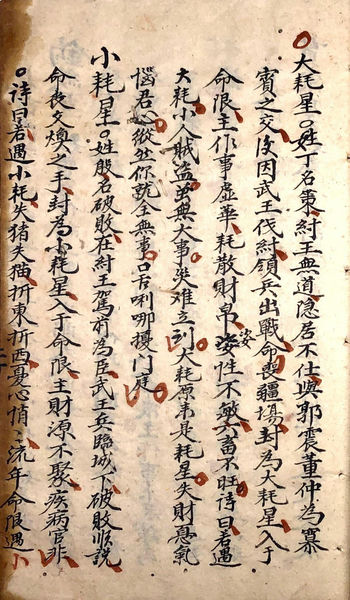 ○大耗星○姓丁名棗紂王無道隐居不仕與郭震董仲為寡
賓之交後因武王伐紂領兵出戰命喪疆場封為大耗星入于
命限主作事虛華耗散財帛姿性不敏六畜不旺詩曰若遇
大耗小人賊盗并無大事災难立到大耗原來是耗星失財惹氣
惱君心縱然你就全無事口舌唎唎擾門庭
小耗星○姓殷名破敗在紂王駕前為臣武王兵臨城下破敗順說
命喪文煥之手封為小耗星入于命限主財源不聚疾病官非
○詩曰若遇小耗失猪失猫折東折西憂心悄々流年命限遇小